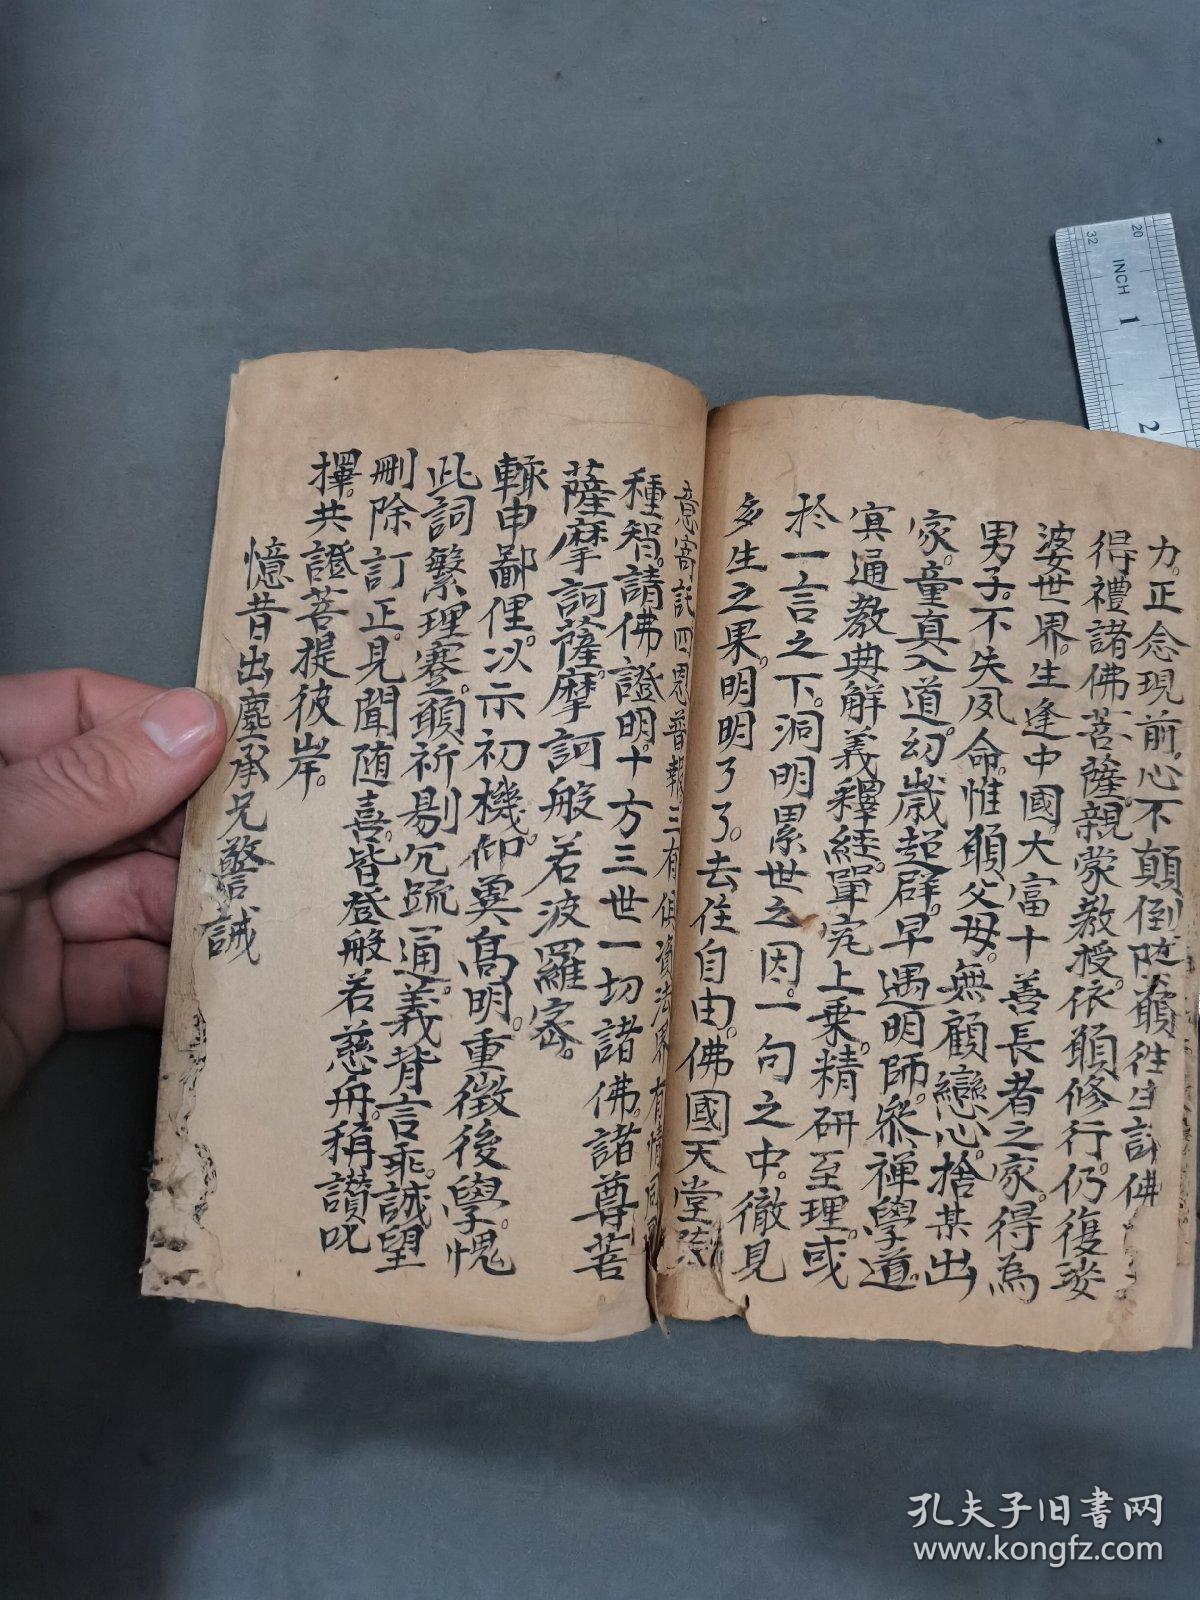 力。正念現前。心不顛倒。随願往生諸佛
得禮諸佛菩薩。親蒙教授。依願修行。仍復娑
婆世界。生逢中國。大富十善長者之家。得為
男子。不失夙命。惟願父母。無顧戀心。捨某出
家。童真入道。幻歲超群。早遇明師。叅禪學道。
寅通教典解義釋經。單究上乗。精研至理。或
於一言之下。洞明累世之因。一句之中。徹見
多生之果。明明了了。去住自由。佛國天堂
意寄託四恩普報三有俱資法界有情同
種智。請佛證明。十方三世一切諸佛。諸尊菩
薩摩訶薩。摩訶般若波羅宻。
輙申鄙俚。以示初機。仰冀高明。重徴後學。愧
此詞繁理寋。願祈剔冗䟽通。義背言乖。誠望
刪除訂正。見聞随喜。皆登般若慈舟。稱讃呪
擇。共證菩提彼岸。
憶昔出塵承兄警誡
INCH
32
20
1
2
孔夫子旧书网
www.kongfz.com